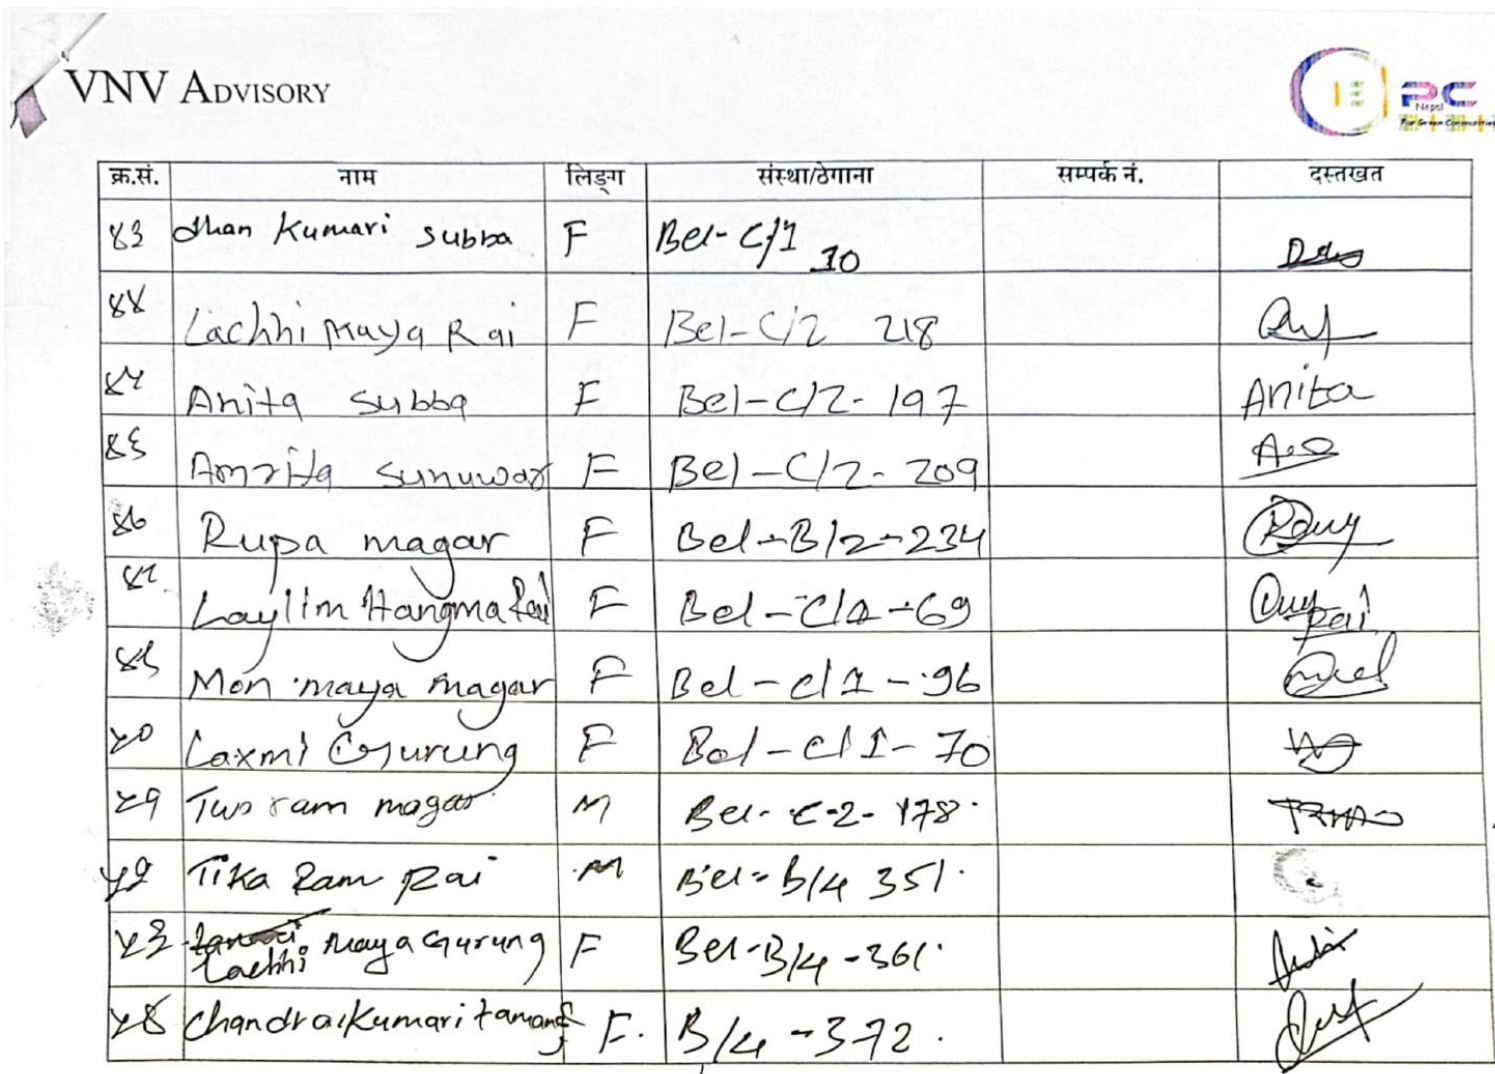 VNV ADVISORY
PC
Nepal
For Green Communities
क्र.सं. नाम लिङ्ग संस्था/ठेगाना सम्पर्क नं. दस्तखत
४३ dhan Kumari subba F Bel- C/1 10
४४ Lachhi maya Rai F Bel-C/2 218
४५ Anita subba F Bel-C/2- 197 Anita
४६ Amrita sunuwar F Bel-C/2- 209
४७ Rupa magar F Bel-B/2-234
४८ Laylim Hangma Rai F Bel-C/1-69 Rai
४९ Mon maya magar F Bel-C/1-96
५० Laxmi Gurung F Bel-C/1-70
५१ ram magar M Bel- C-2- 178.
५२ Tika Ram Rai M Bel- B/4 351.
५३ Lachhi maya Gurung F Bel-B/4-361.
५४ Chandra Kumari tamang F. B/4-372.